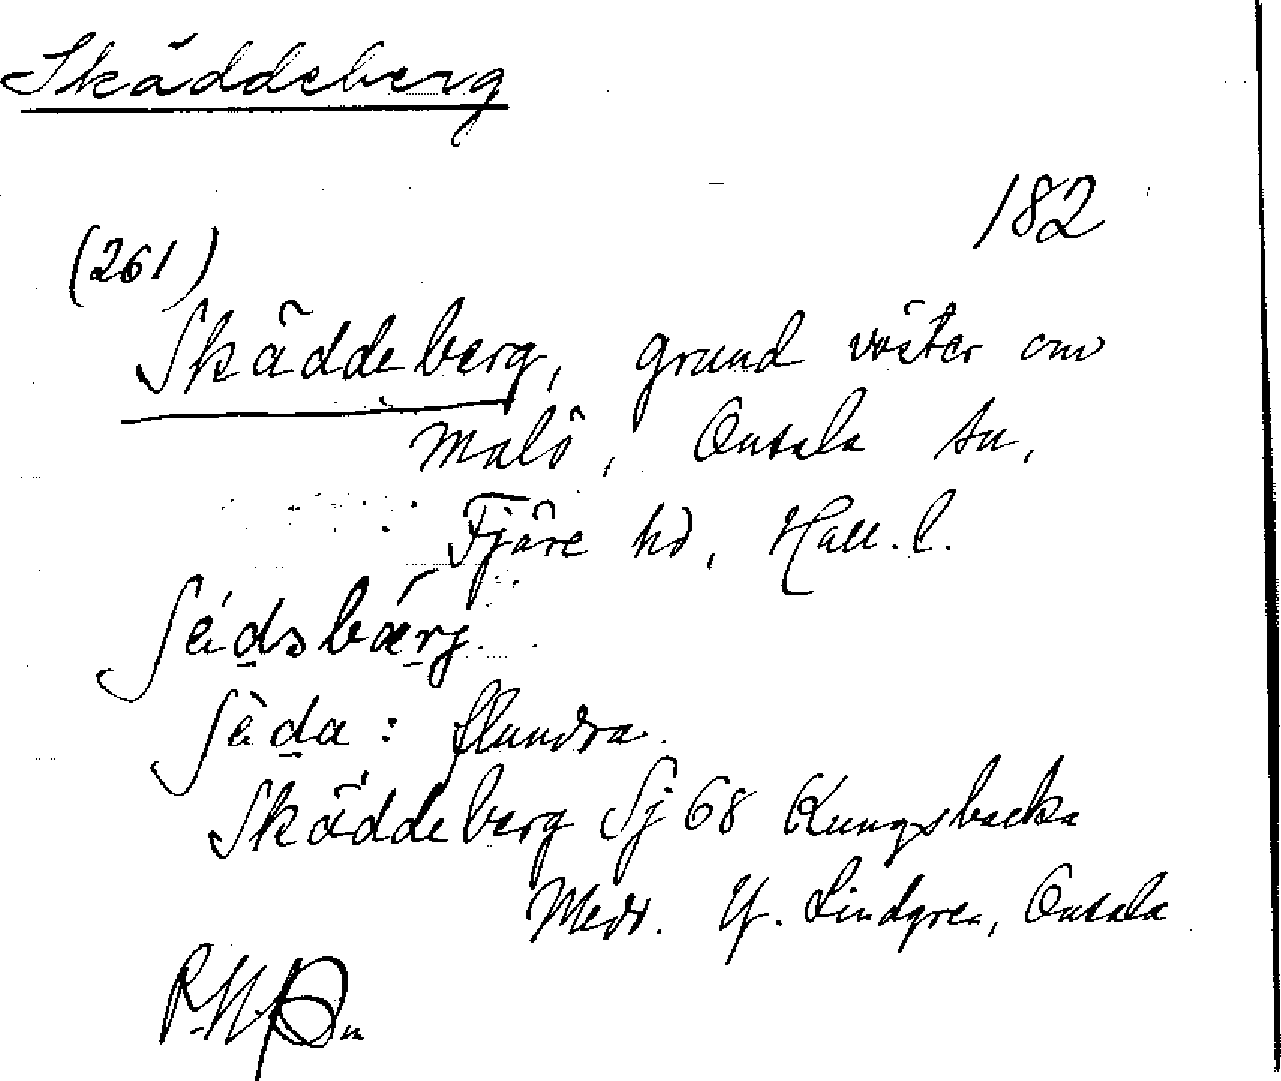 Skäddeberg
182
(261)
Skäddeberg, grund väster om
Malö, Onsala sn,
Fjäre hd, Hall. l.
ʃèdsbærj.
ʃèda: flundra.
Skäddeberg Sj 68 Kungsbacka
Medd. Y. Lindgren, Onsala